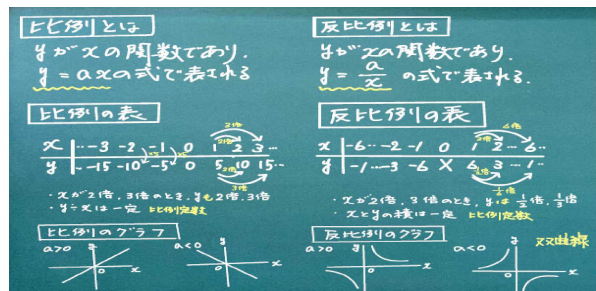 比例とは
yがxの関数であり.
y=axの式で表される
比例の表
x …-3 -2 -1 0 1 2 3…
y …-15 -10 -5 0 5 10 15…
2倍
3倍
×5
×5
2倍
3倍
・xが2倍、3倍のとき、yも2倍、3倍
・y÷xは一定 比例定数
比例のグラフ
a>0 y x 0
a<0 y x 0
反比例とは
yがxの関数であり.
y=a/xの式で表される.
反比例の表
x …-6…-2 -1 0 1 2…6…
y …-1…-3 -6 X 6 3…1…
2倍
6倍
1/2倍
1/6倍
・xが2倍、3倍のとき、yは1/2倍、1/3倍
・xとyの積は一定 比例定数
反比例のグラフ
双曲線
a>0 y x 0
a<0 y x 0